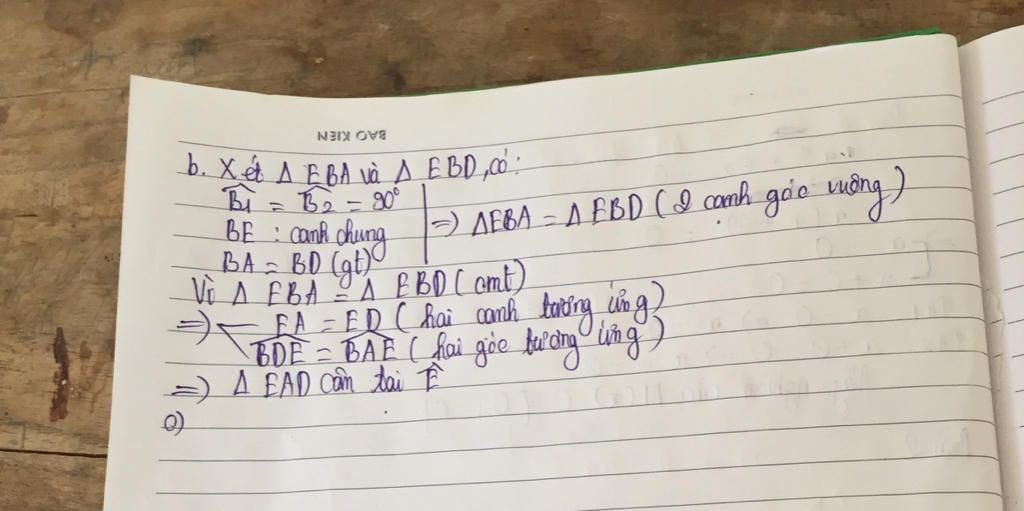 BAO KIEN
b. Xét Δ EBA và Δ EBD, có:
B1 = B2 = 90°
BE : cạnh chung
BA = BD (gt)
=) ΔEBA = Δ EBD ( 2 cạnh góc vuông )
Vì Δ EBA = Δ EBD ( cmt )
=) EA = ED ( hai cạnh tương ứng )
BDE = BAE ( hai góc tương ứng )
=) Δ EAD cân tại Ê
c)